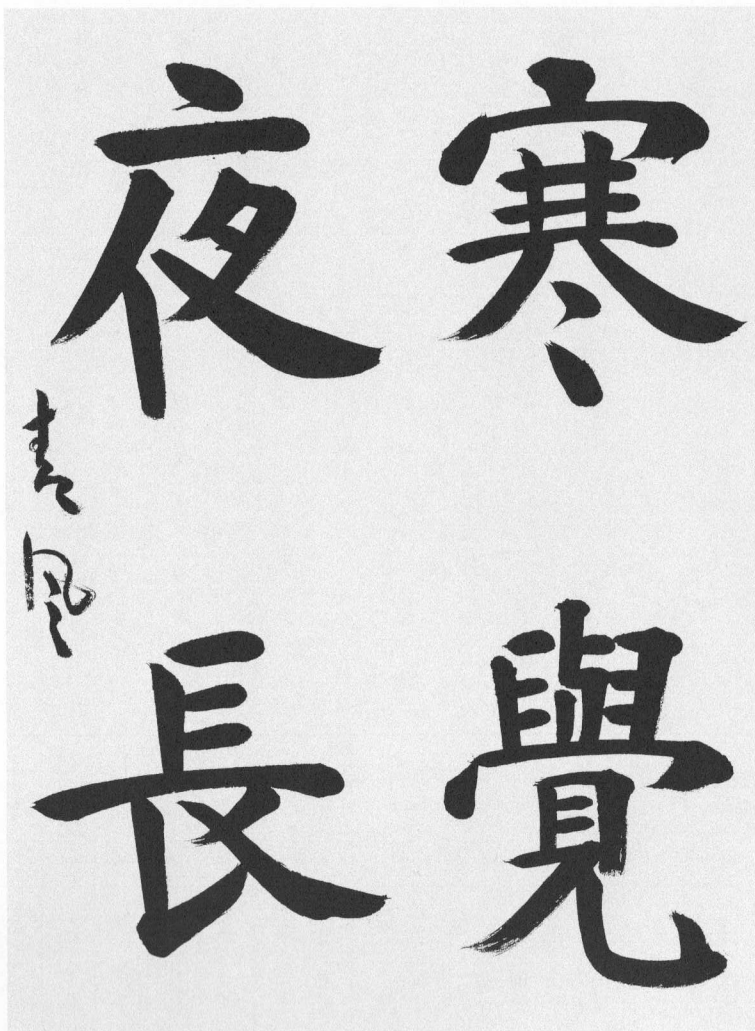 寒覺
夜長
青風